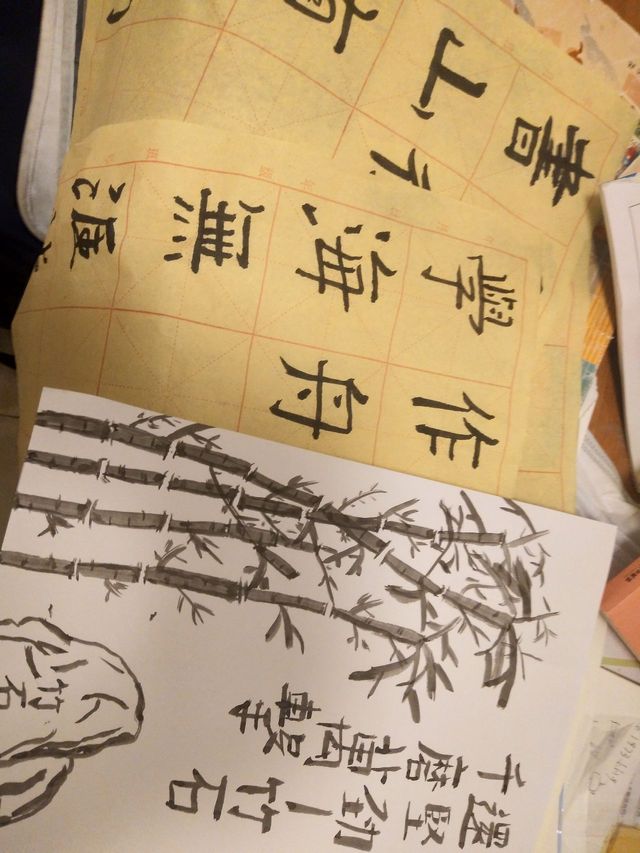 書山有
學海無涯
作舟
千磨萬擊
還堅勁—竹石
竹石